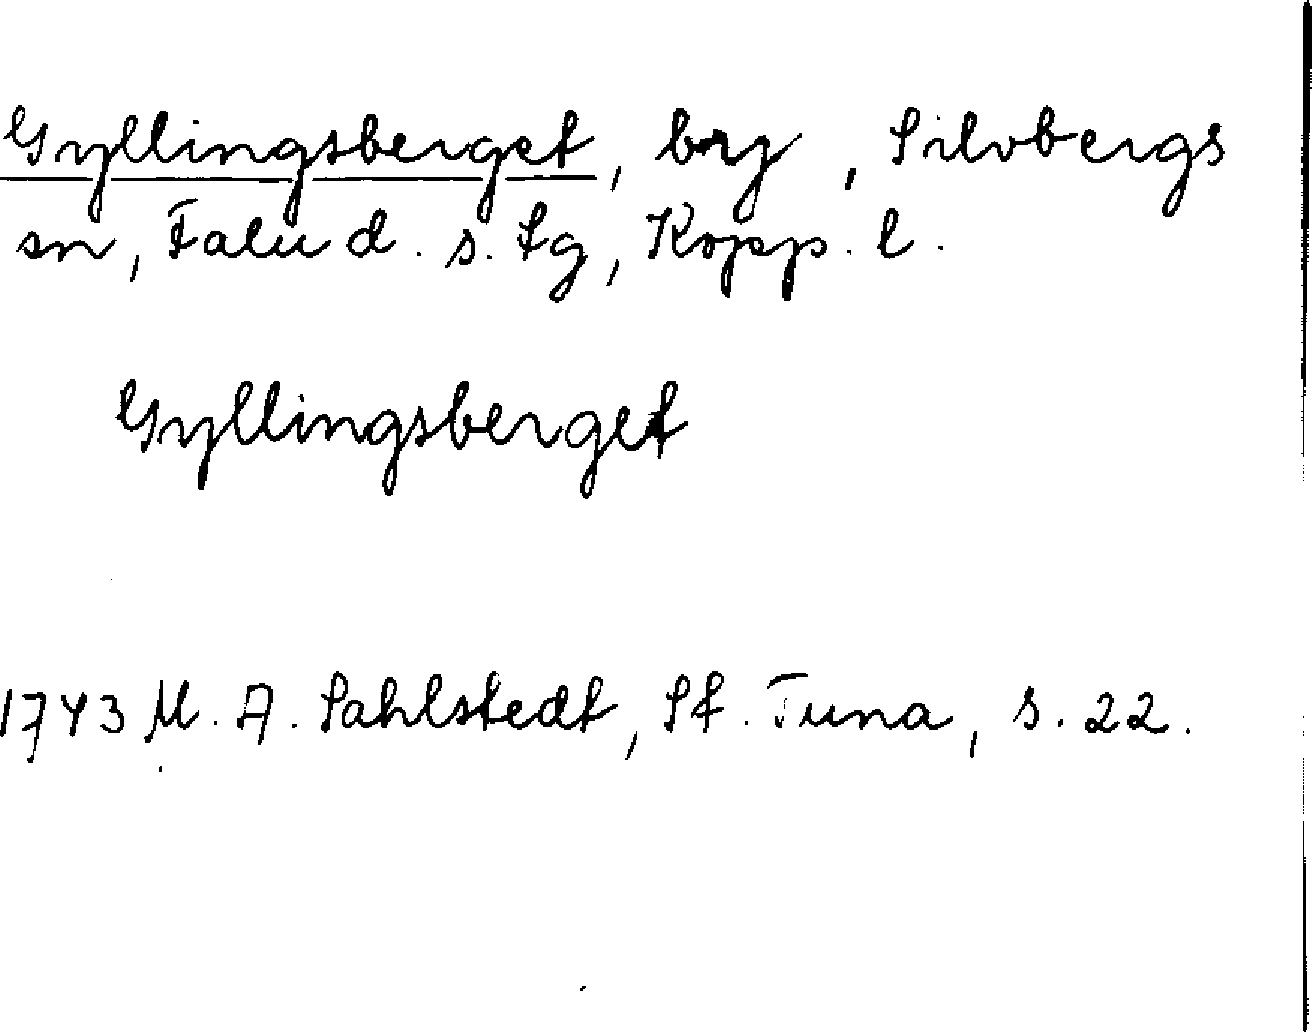 Gyllingsberget, by, Silvbergs
sn, Falu d. s. tg, Kopp. l.
Gyllingsberget
1743 M. A. Sahlstedt, St. Tuna, s. 22.